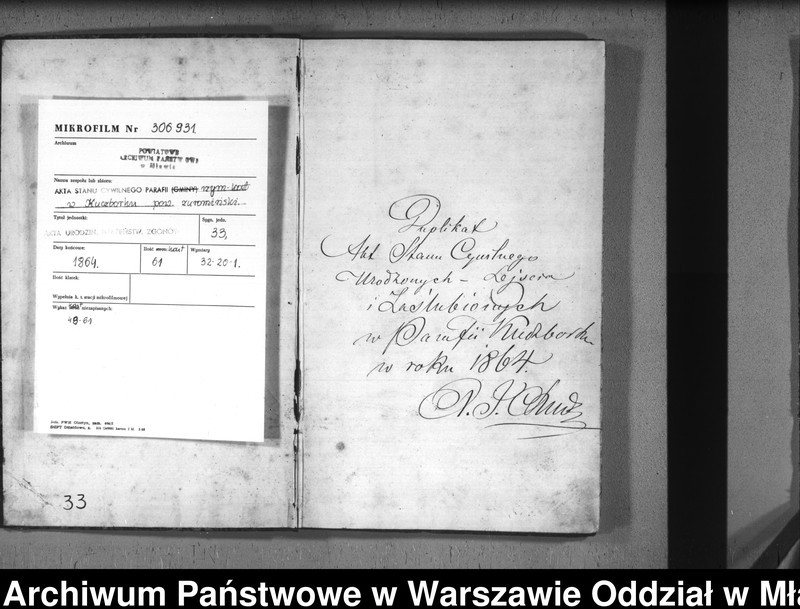 MIKROFILM Nr 306931
Archiwum
POWIATOWE
ARCHIWUM PAŃSTWOWE
w Mławie
Nazwa zespołu lub zbioru:
AKTA STANU CYWILNEGO PARAFII (GMINY) rzym-kat
w Kuczborku pow. żuromiński
Tytuł jednostki:
Sygn. jedn.
AKTA URODZIN, MAŁŻEŃSTW, ZGONÓW
33,
Daty końcowe:
Ilość kart
Wymiary
1864.
61
32-20-1.
Ilość klatek:
Wypełnia k. z. stacji mikrofilmowej
Wykaz kart niezapisanych:
48-61
33
Duplikat
Akt Stanu Cywilnego
Urodzonych – Zejścia
i Zaślubionych
w Parafii Kuczborku
w roku 1864.
Archiwum Państwowe w Warszawie Oddział w Mła